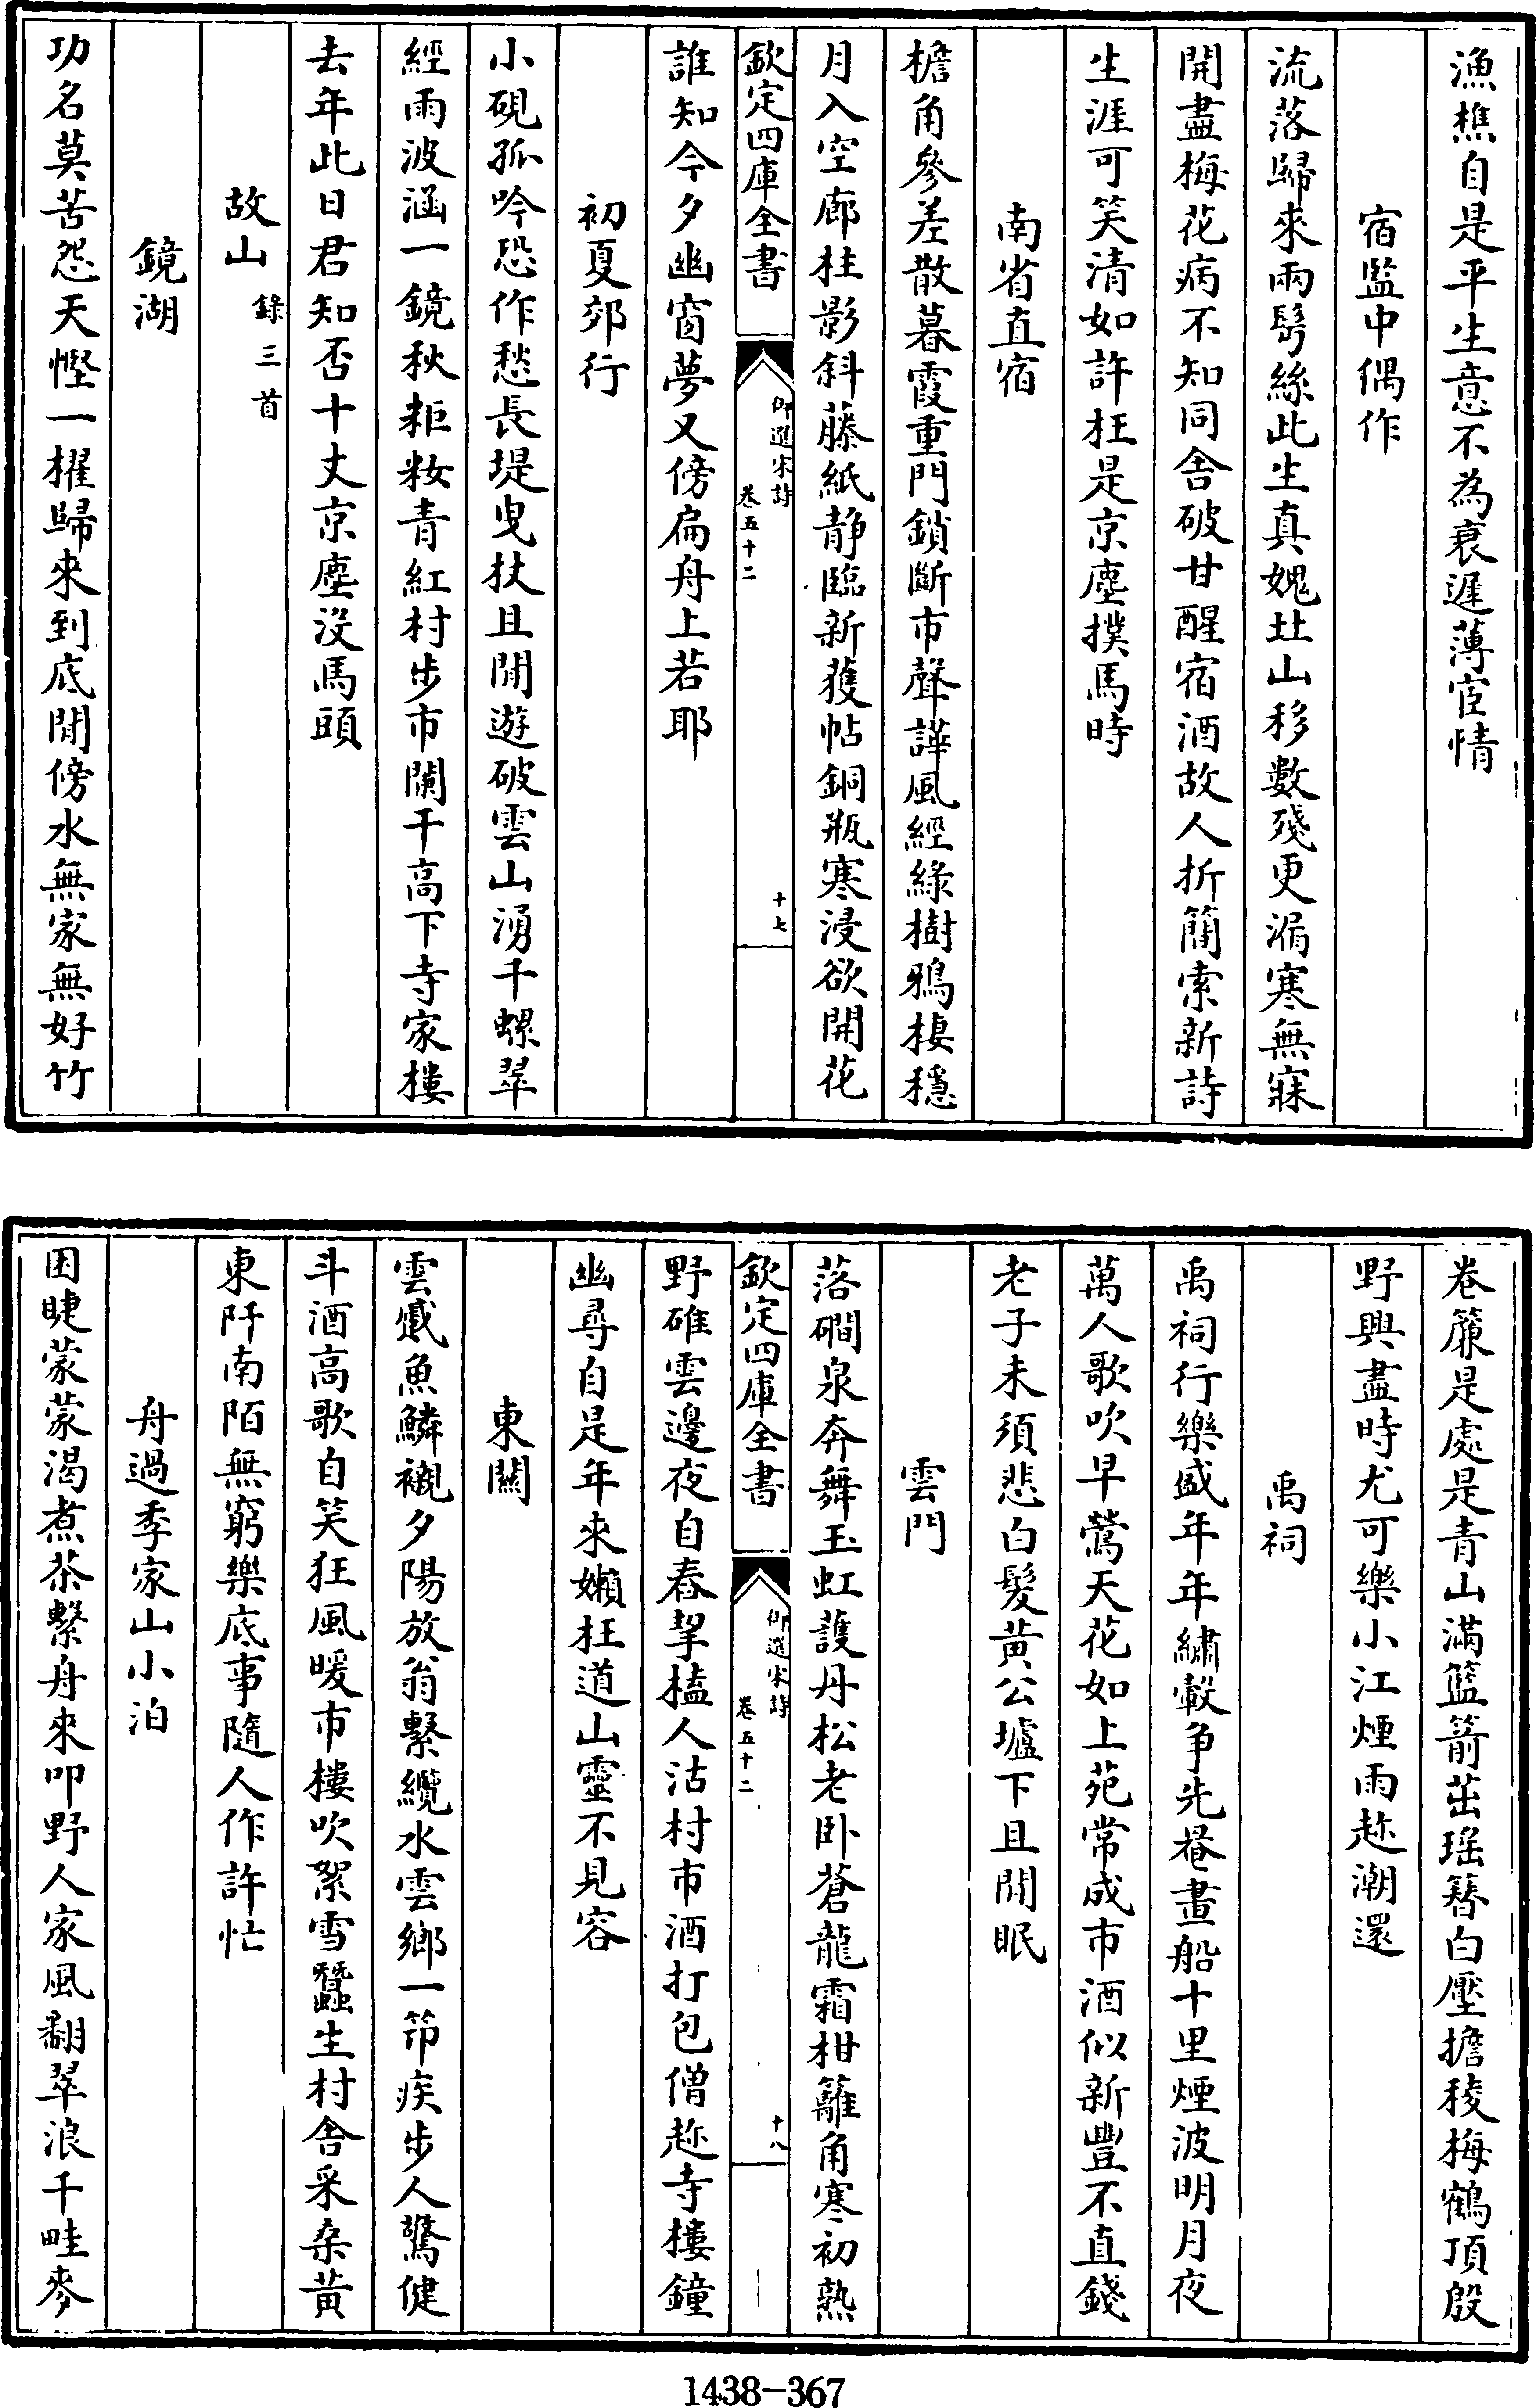 漁樵自是平生意不為衰遲薄宦情
宿監中偶作
流落歸來兩鬢絲此生真媿北山移數殘更漏寒無寐
開盡梅花病不知同舍破甘醒宿酒故人折簡索新詩
生涯可笑清如許枉是京塵撲馬時
南省直宿
檐角參差散暮霞重門鎖斷市聲譁風經綠樹鴉棲穩
月入空廊柱影斜藤紙静臨新獲帖銅瓶寒浸欲開花
欽定四庫全書
御選宋詩
卷五十二
十七
誰知今夕幽窗夢又傍扁舟上若耶
初夏郊行
小硯孤吟恐作愁長堤曳杖且閒遊破雲山湧千螺翠
經雨波涵一鏡秋粔籹青紅村步市闌干高下寺家樓
去年此日君知否十丈京塵没馬頭
故山錄三首
鏡湖
功名莫苦怨天慳一櫂歸來到底閒傍水無家無好竹
卷簾是處是青山滿籃箭茁瑶簪白壓擔稜梅鶴頂殷
野興盡時尤可樂小江煙雨趂潮還
禹祠
禹祠行樂盛年年繡轂争先罨畫船十里煙波明月夜
萬人歌吹早鶯天花如上苑常成市酒似新豐不直錢
老子未須悲白髮黄公壚下且閒眠
雲門
落磵泉奔舞玉虹護丹松老卧蒼龍霜柑籬角寒初熟
欽定四庫全書
御選宋詩
卷五十二
十八
野碓雲邊夜自舂挈榼人沽村市酒打包僧趂寺樓鐘
幽尋自是年來嬾枉道山靈不見容
東關
雲蹙魚鱗襯夕陽放翁繫纜水雲鄉一笻疾步人驚健
斗酒高歌自笑狂風暖市樓吹絮雪蠶生村舍采桑黄
東阡南陌無窮樂底事隨人作許忙
舟過季家山小泊
困睫蒙蒙渴煮茶繫舟來叩野人家風翻翠浪千畦麥
1438-367